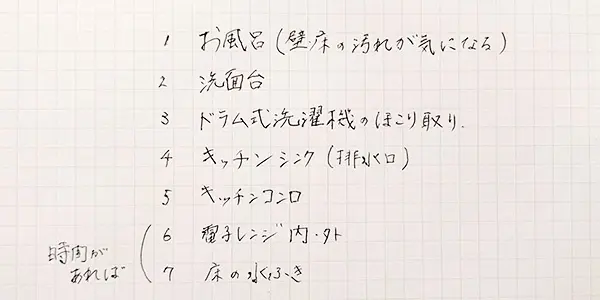 1 お風呂(壁・床の汚れが気になる)
2 洗面台
3 ドラム式洗濯機のほこり取り.
4 キッチンシンク(排水口)
5 キッチンコンロ
時間があれば
6 電子レンジ内・外
7 床の水ぶき